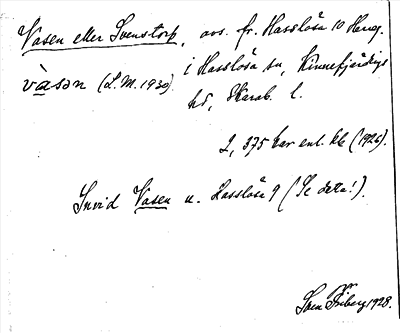 Vasen eller Svenstorp, avs. fr. Hasslösa 10 Heng.
vàsən (L.M. 1930) i Hasslösa sn, Kinnefjärdings
hd, Skarab. l.
2,375 har enl. kb (1926).
Invid Vasen u. Hasslösa 9 (Se detta!).
Sven Friberg 1928.